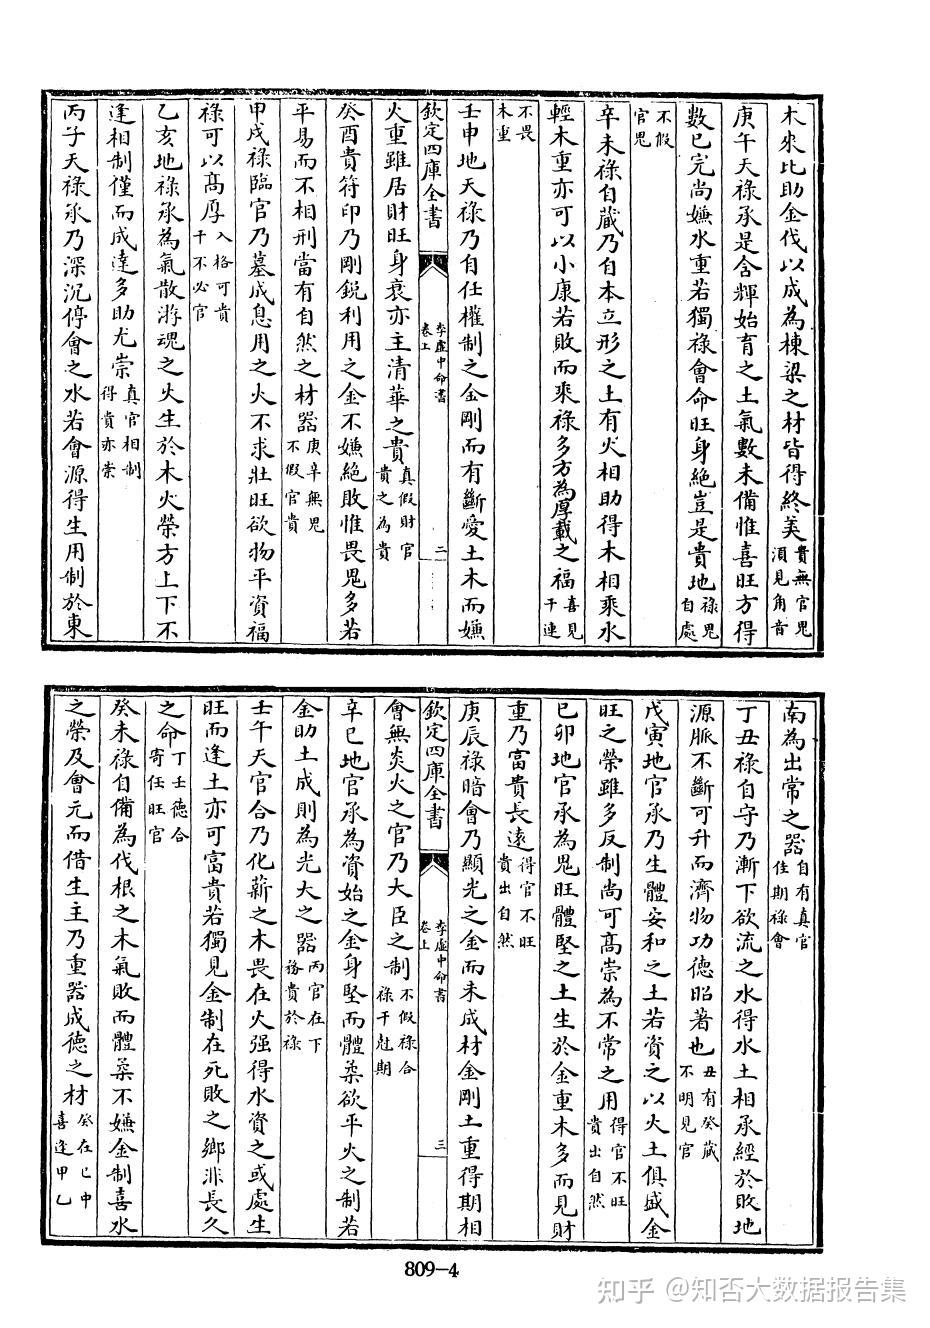 木來比助金伐以成為棟梁之材皆得終美貴無官鬼須見角音
庚午天祿承是含輝始育之土氣數未備惟喜旺方得
數已完尚嫌水重若獨祿會命旺身絕豈是貴地祿鬼自處
不假官鬼
辛未祿自蔵乃自本立形之土有火相助得木相乘水
輕木重亦可以小康若敗而乘祿多方為厚載之福喜見干連
不畏木重
壬申地天祿乃自任權制之金剛而有斷愛土木而嫌
欽定四庫全書 李虛中命書卷上 二
火重雖居財旺身衰亦主清華之貴真假財官貴之為貴
癸酉貴符印乃剛銳利用之金不嫌絕敗惟畏鬼多若
平易而不相刑當有自然之材器庚辛無鬼不假官貴
甲戌祿臨官乃墓成息用之火不求壯旺欲物平資福
祿可以高厚入格可貴干不必官
乙亥地祿承為氣散游魂之火生於木火榮方上下不
逢相制僅而成達多助尤崇真官相制得貴亦崇
丙子天祿承乃深沉停會之水若會源得生用制於東
南為出常之器自有真官佳期祿會
丁丑祿自守乃漸下欲流之水得水土相承經於敗地
源脈不斷可升而濟物功德昭著也丑有癸蔵不明見官
戊寅地官承乃生體安和之土若資之以火土俱盛金
旺之榮雖多反制尚可高崇為不常之用得官不旺貴出自然
己卯地官承為鬼旺體堅之土生於金重木多而見財
重乃富貴長遠得官不旺貴出自然
庚辰祿暗會乃顯光之金而未成材金剛土重得期相
欽定四庫全書 李虛中命書卷上 三
會無炎火之官乃大臣之制不假祿合祿干尅期
辛巳地官承為資始之金身堅而體柔欲平火之制若
金助土成則為光大之器丙官在下務貴於祿
壬午天官合乃化薪之木畏在火强得水資之或處生
旺而逢土亦可富貴若獨見金制在死敗之鄉非長久
之命丁壬德合寄任旺官
癸未祿自備為代根之木氣敗而體柔不嫌金制喜水
之榮及會元而借生主乃重器成德之材癸在巳中喜逢甲乙
809-4
知乎 @知否大数据报告集